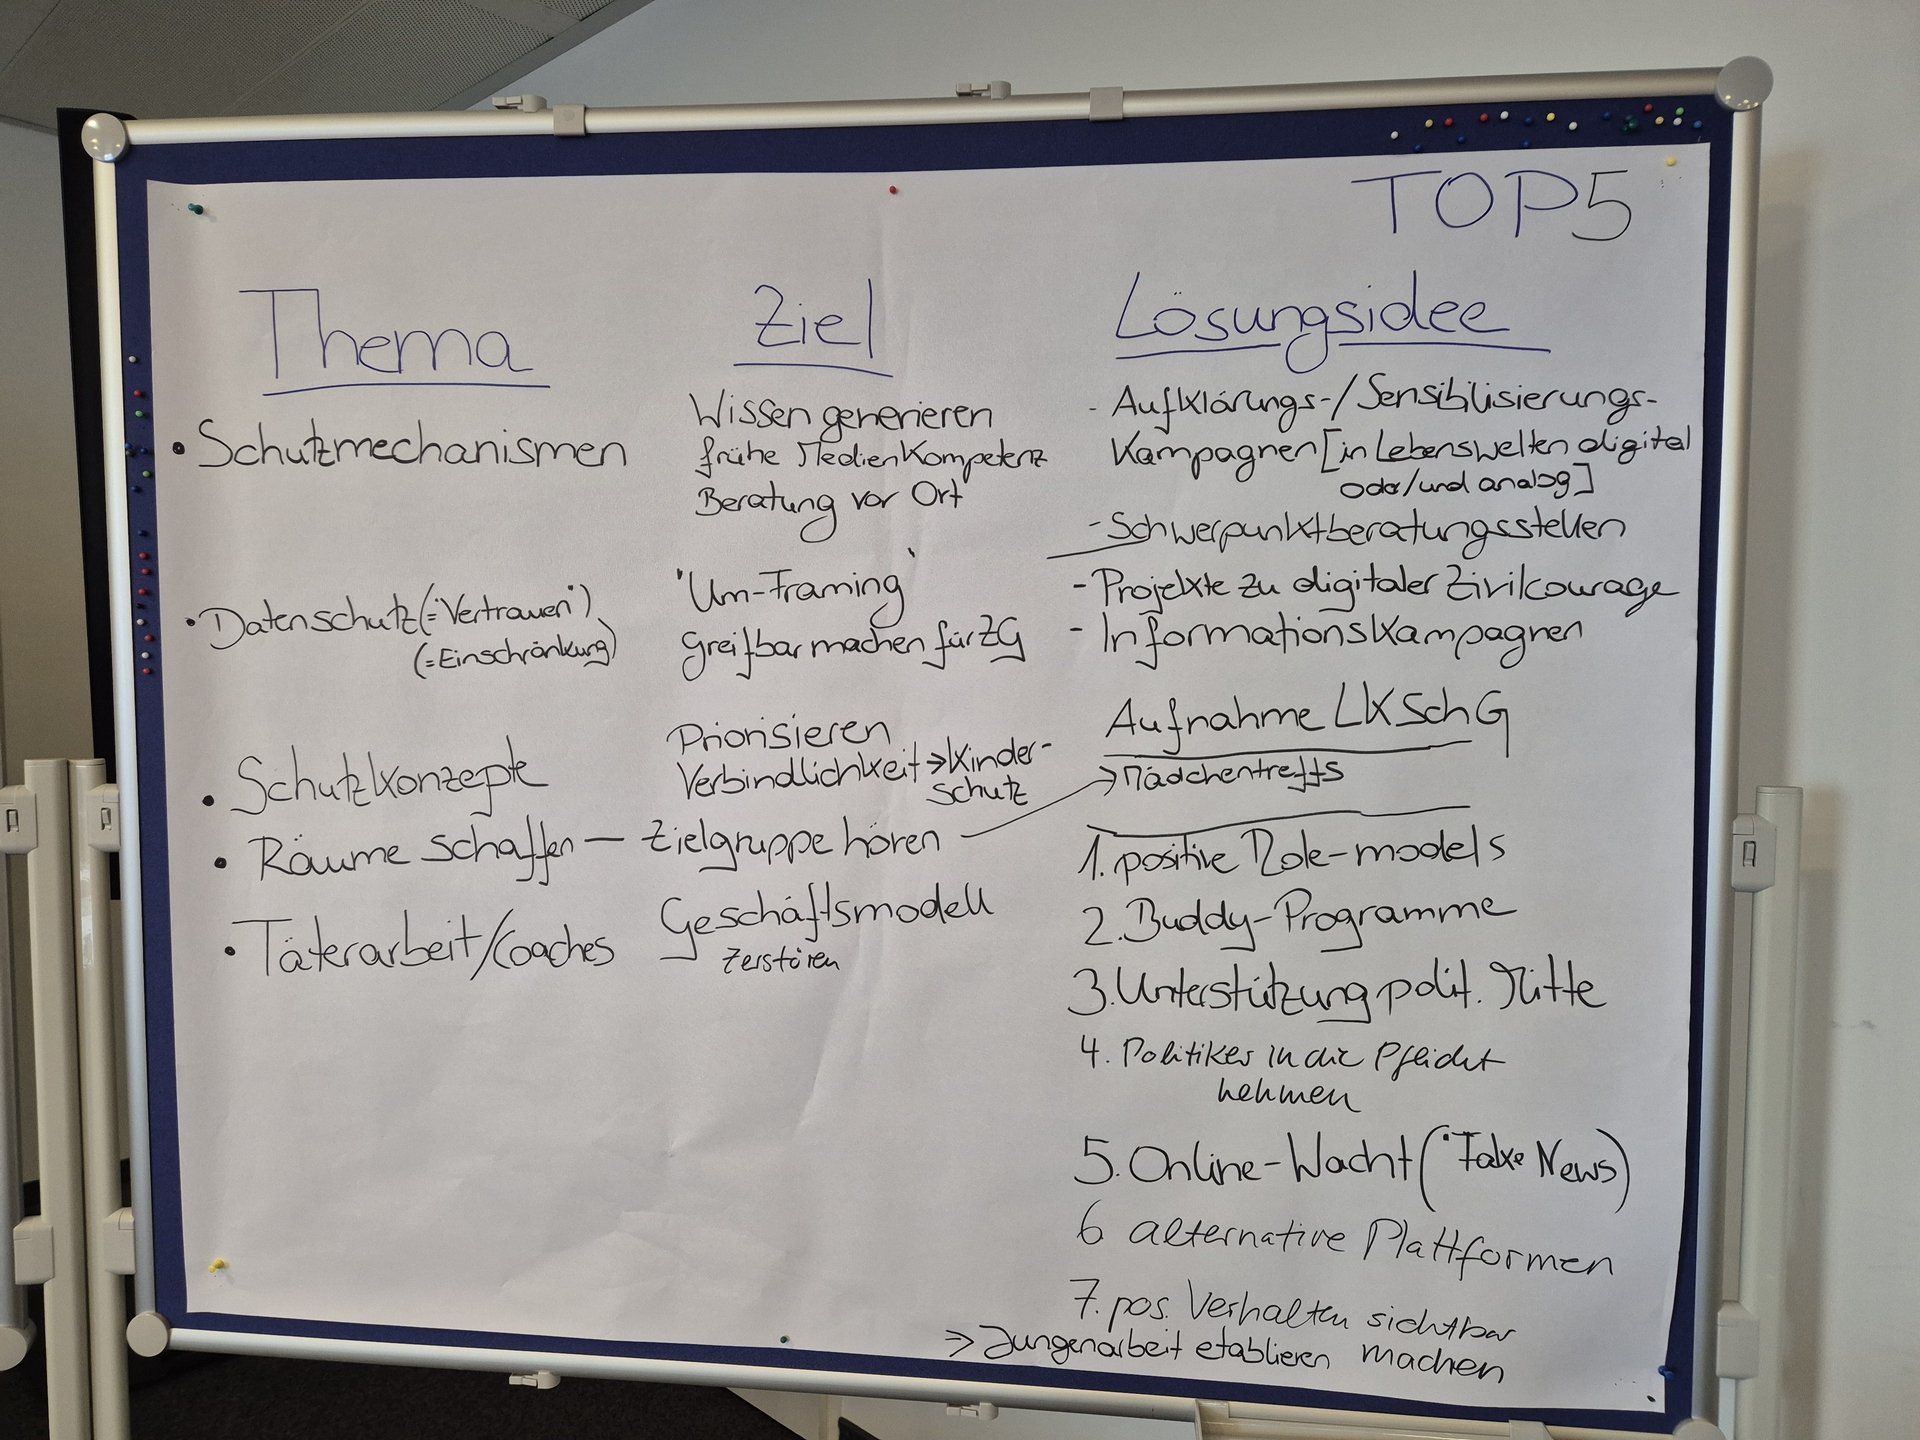 TOP5
Thema
Ziel
Lösungsidee
• Schutzmechanismen
Wissen generieren
frühe Medienkompetenz
Beratung vor Ort
- Aufklärungs-/Sensibilisierungs-
kampagnen [in Lebenswelten digital
oder/und analog]
- Schwerpunktberatungsstellen
• Datenschutz (="Vertrauen")
(=Einschränkung)
'Um-Framing'
greifbar machen für ZG
- Projekte zu digitaler Zivilcourage
- Informationskampagnen
• Schutzkonzepte
Priorisieren
Verbindlichkeit → Kinder-
schutz
Aufnahme LKSchG
→ Mädchentreffs
• Räume schaffen — Zielgruppe hören
• Täterarbeit/Coaches
Geschäftsmodell
zerstören
1. positive Role-models
2. Buddy-Programme
3. Unterstützung polit. Mitte
4. Politiker in die Pflicht
nehmen
5. Online-Wacht ("Fake News)
6 alternative Plattformen
7. pos. Verhalten sichtbar
machen
→ Jungenarbeit etablieren